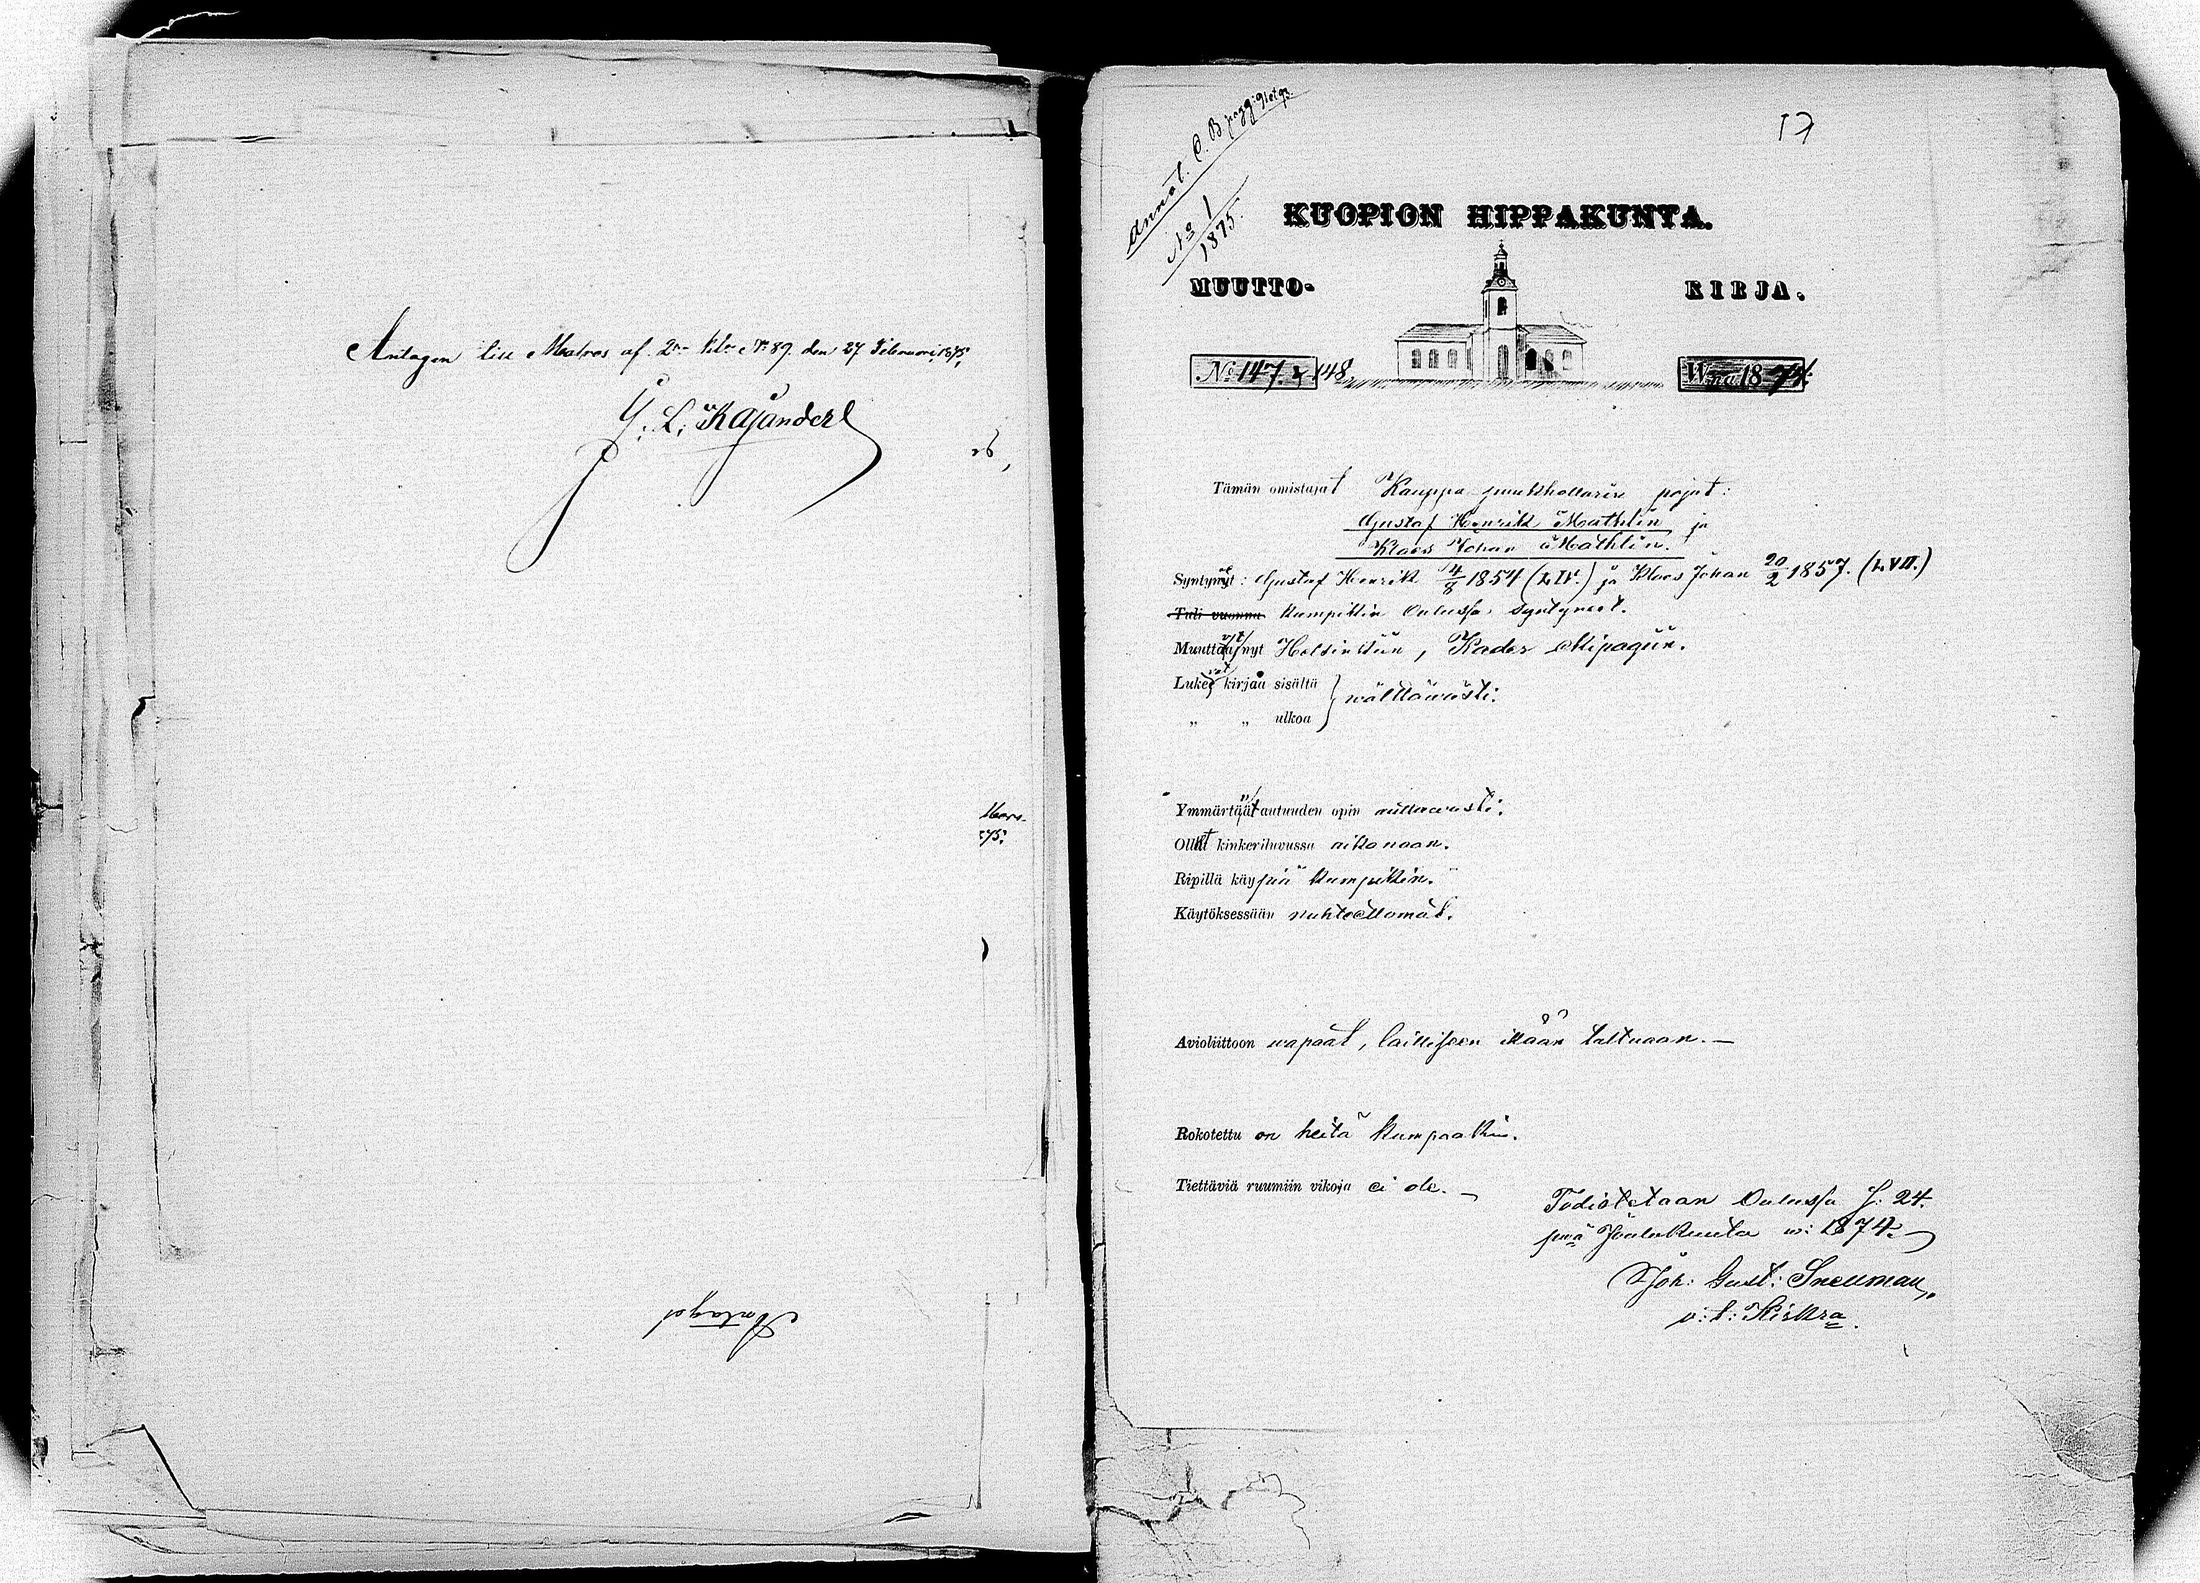 Antagen till Matros af 2:n kl:n N:o 89. den 27 Februari 1875.
G. L. Kajanderl
Mars
Antaget
17
Annot. C. B. pagg: 91 et 92.
No 1
1875.
KUOPION HIPPAKUNTA.
MUUTTO- KIRJA.
No 147. & 148. Wna 1874.
Tämän omistajat Kauppa-puukhollarin pojat:
Gustaf Henrik Mathlin ja
Klaes Johan Mathlin.
Syntynyt: Gustaf Henrik 4/8 1854 (LIV.) ja Klaes Johan 20/2 1857. (LVII.)
Tuli vuonna kumpikin Oulussa syntyneet.
Muuttavat nyt Helsinkiin, Kader Ekipagiin.
Lukevat kirjaa sisältä } wälttäwästi.
„ „ ulkoa
Ymmärtävät autuuden opin auttawasti.
Ollut kinkeriluvussa aikanaan.
Ripillä käypiä kumpikin.
Käytöksessään nuhteettomat.
Avioliittoon wapaat, lailliseen ikään tultuaan. —
Rokotettu on heitä kumpaakin.
Tiettäviä ruumiin vikoja ei ole. —
Todistetaan Oulussa s: 24.
pnä Joulukuuta w: 1874.
Joh: Gust: Snellman,
v: t: Kirkhra.